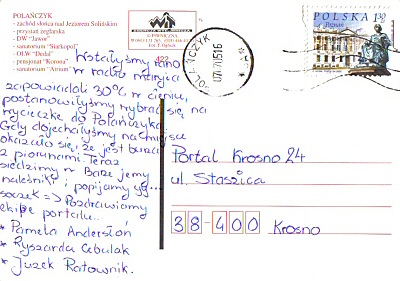 POLAŃCZYK
- zachód słońca nad Jeziorem Solińskim
- przystań żeglarska
- DW "Jawor"
- sanatorium "Starkopol"
- OLW "Dedal"
- pensjonat "Korona"
- sanatorium "Atrium"
422
POLAŃCZYK
POLSKA 1,30
Poznań
Wstałyśmy rano
w radio maryja
zapowiadali 30°C w cieniu,
postanowiłyśmy wybrać się na
wycieczkę do Polańczyka.
Gdy dojechałyśmy na miejsce
okazało się, że jest burza
z piorunami. Teraz
siedzimy w Barze jemy
naleśniki i popijamy
soczek => Pozdrawiamy
ekipę portalu...
* Pamela Anderstón
* Ryszarda Cebulak
* Juzek Ratownik.
Portal Krosno 24
ul. Staszica
38-400 Krosno